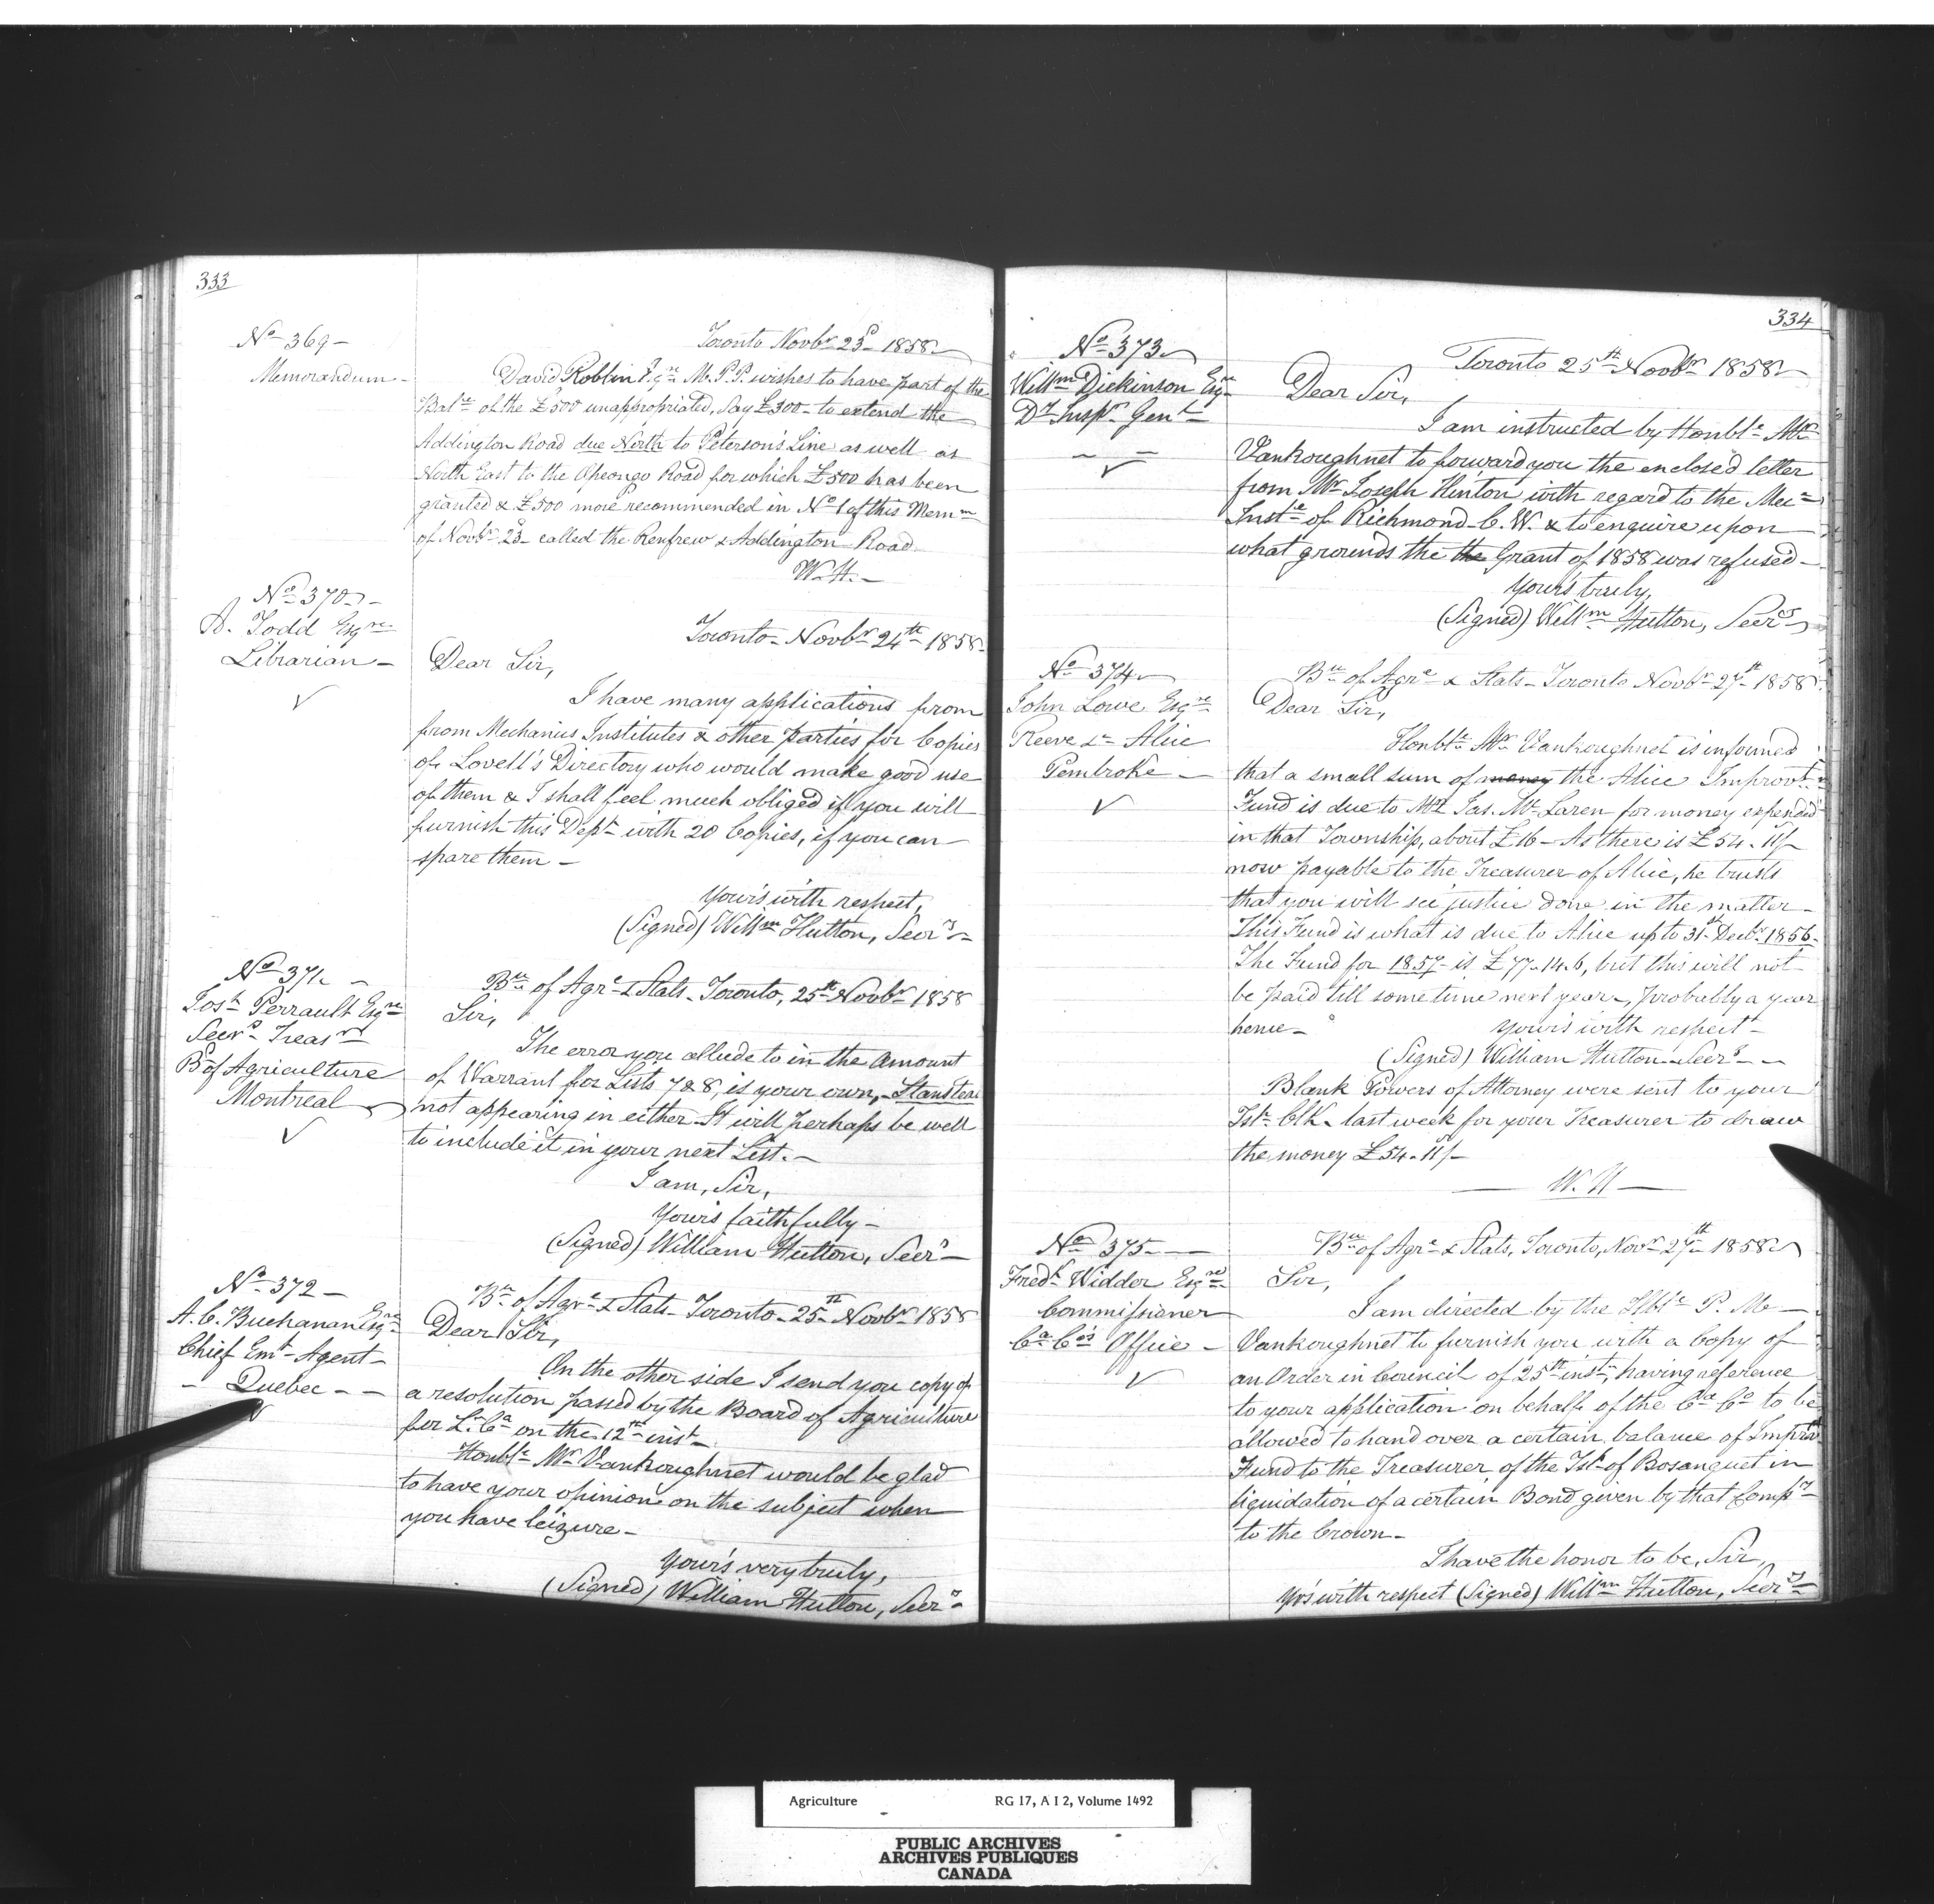 333
No 369 -
Memorandum -
Toronto Novbr 23d 1858
David Roblin Esqre M.P.P. wishes to have part of the
Balce of the £500 unappropriated, say £300 - to extend the
Addington Road due North to Peterson's Line as well as
North East to the Opeongo Road for which £500 has been
granted & £500 more recommended in No 1 of this Memm
of Novbr 23d called the Renfrew & Addington Road
W.H. -
No 370 -
A. Todd Esqre
Librarian -
✓
Toronto - Novbr 24th 1858 -
Dear Sir,
I have many applications from
from Mechanics Institutes & other parties for Copies
of Lovell's Directory who would make good use
of them & I shall feel much obliged if you will
furnish this Dept with 20 Copies, if you can
spare them -
Your's with respect,
(Signed) Willm Hutton, Secry -
No 371 -
Josh Perrault Esqre
Secry Treasr
Bd of Agriculture
Montreal -
✓
Bu of Agre & Stats - Toronto, 25th Novbr 1858
Sir,
The error you allude to in the amount
of Warrant for Lists 7 & 8, is your own, - Stanstead
not appearing in either - It will perhaps be well
to include it in your next List. -
I am, Sir,
Your's faithfully -
(Signed) William Hutton, Secry -
No 372 -
A. C. Buchanan Esqre
Chief Emt Agent -
- Quebec - -
✓
Bu of Agre & Stats - Toronto - 25th Novbr 1858
Dear Sir,
On the other side I send you copy of
a resolution passed by the Board of Agriculture
for L. Ca on the 12th inst -
Honble Mr Vankoughnet would be glad
to have your opinion on the subject when
you have leizure -
Your's very truly,
(Signed) William Hutton, Secry -
334
No 373
Willm Dickinson Esqre
Dy Inspr Genl
✓
Toronto 25th Novbr 1858
Dear Sir,
I am instructed by Honble Mr
Vankoughnet to forward you the enclosed letter
from Mr Joseph Hinton with regard to the Mec
Inste of Richmond C. W. & to enquire upon
what grounds the the Grant of 1858 was refused -
Your's truly,
(Signed) Willm Hutton, Secry
No 374
John Lowe Esqre
Reeve &c Alice
Pembroke -
✓
Bu of Agre & Stats - Toronto Novbr 27th 1858
Dear Sir,
Honble Mr Vankoughnet is informed
that a small sum of money the Alice Improvt
Fund is due to Mr Jas. McLaren for money expended
in that Township, about £16 - As there is £54. 11/-
now payable to the Treasurer of Alice, he trusts
that you will see justice done in the matter -
This Fund is what is due to Alice up to 31st Decbr 1856 -
The Fund for 1857 is £77. 14. 6, but this will not
be paid till some time next year -, probably a year
hence -
Your's with respect -
(Signed) William Hutton - Secry -
Blank Powers of Attorney were sent to your
Tsp Clk - last week for your Treasurer to draw
the money £54. 11/-
W. H
No 375 -
Fredk Widder Esqre
Commissioner
Ca Co's Office -
✓
Bu of Agre & Stats, Toronto, Novr 27th 1858
Sir,
I am directed by the Hble P. M.
Vankoughnet to furnish you with a Copy of
an Order in Council of 25th inst, having reference
to your application on behalf of the Ca Co to be
allowed to hand over a certain balance of Improvt
Fund to the Treasurer of the Tsp of Bosanquet in
liquidation of a certain Bond given by that Compy
to the Crown -
I have the honor to be, Sir,
Yrs with respect (Signed) Willm Hutton, Secry
Agriculture RG 17, A I 2, Volume 1492
PUBLIC ARCHIVES
ARCHIVES PUBLIQUES
CANADA